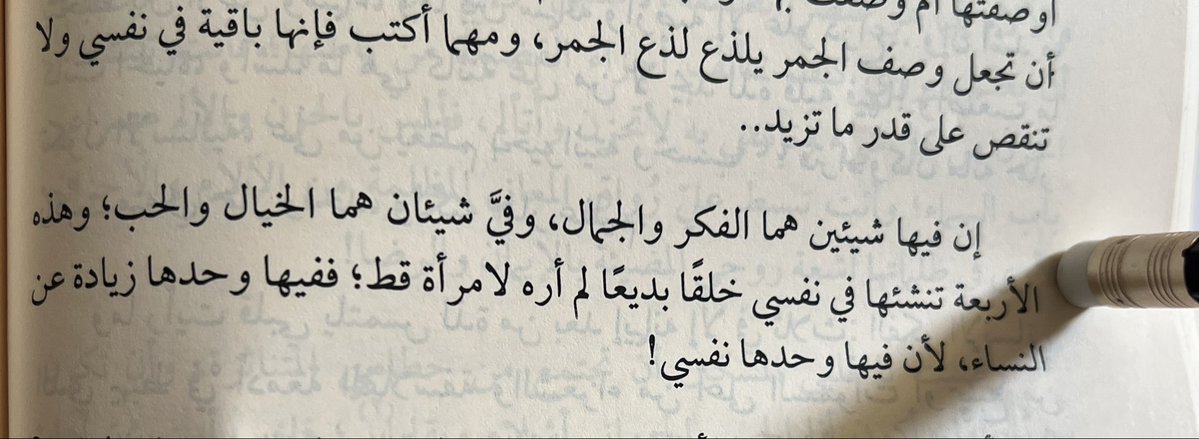 أوصفتها أم وصفت
أن تجعل وصف الجمر يلذع لذع الجمر، ومهما أكتب فإنها باقية في نفسي ولا
تنقص على قدر ما تزيد..
إن فيها شيئين هما الفكر والجمال، وفيَّ شيئان هما الخيال والحب؛ وهذه
الأربعة تنشئها في نفسي خلقًا بديعًا لم أره لامرأة قط؛ ففيها وحدها زيادة عن
النساء، لأن فيها وحدها نفسي!